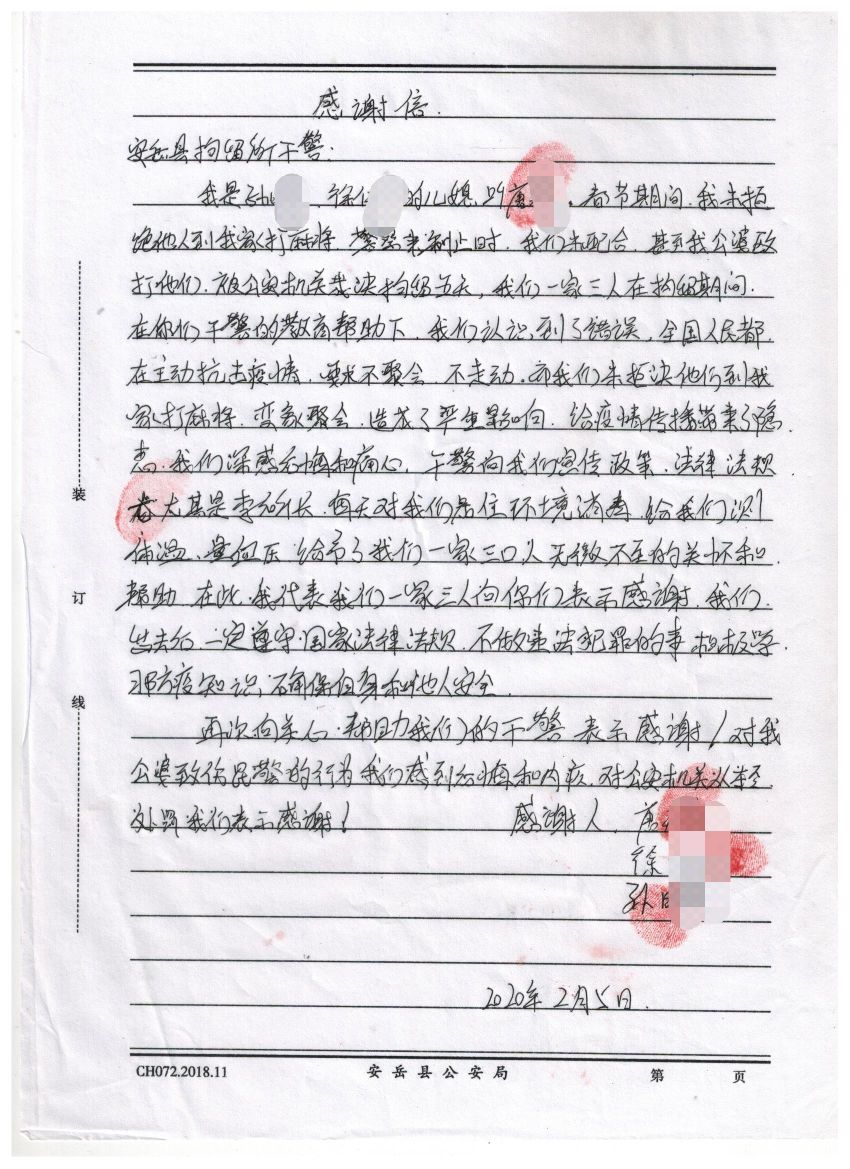 感谢信.
安岳县拘留所干警:
我是孙 、徐 的儿媳,叫唐 。春节期间,我未拒
绝他人到我家打麻将,警察来制止时,我们未配合,甚至我公婆殴
打他们,被公安机关裁决拘留五天,我们一家三人在拘留期间.
在你们干警的教育帮助下,我们认识到了错误,全国人民都
在主动抗击疫情,要求不聚会,不走动,而我们未拒决他们到我
家打麻将,变象聚会,造成了严重影响,给疫情传播带来了隐
患,我们深感后悔和痛心,干警向我们宣传政策、法律法规
尤其是李所长,每天对我们居住环境消毒,给我们测
体温、量血压 给予了我们一家三口人无微不至的关怀和
帮助,在此,我代表我们一家三人向你们表示感谢,我们
出去后,一定遵守国家法律法规,不做违法犯罪的事,积极学
习防疫知识,确保自身和他人安全.
再次向关心、帮助我们的干警表示感谢!对我
公婆致伤民警的行为我们感到后悔和内疚,对公安机关从轻
处罚我们表示感谢!
感谢人,唐
徐
孙
2020年2月5日.
装
订
线
CH072.2018.11 安岳县公安局 第 页